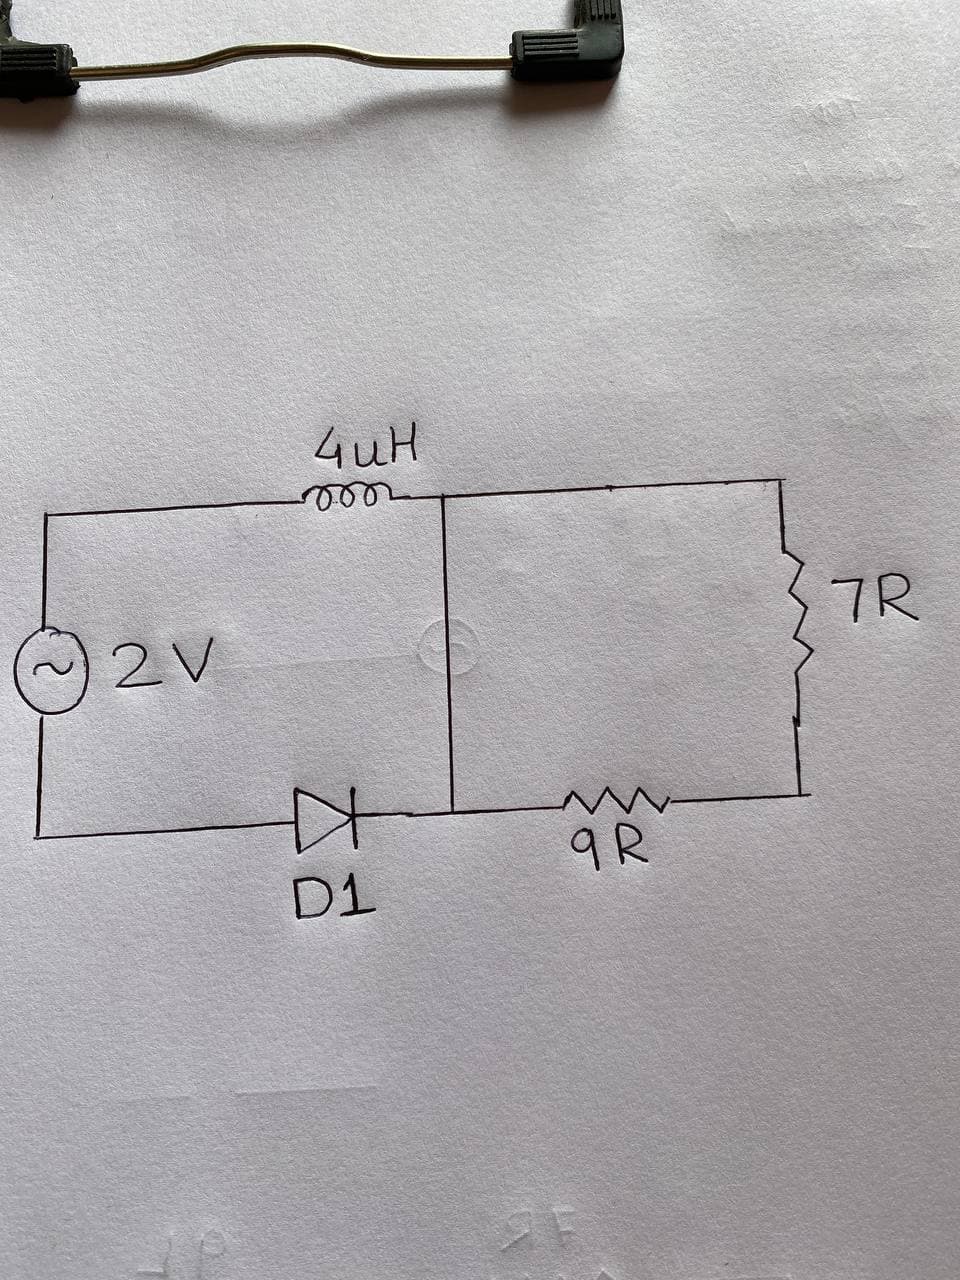 4uH
7R
2V
9R
D1